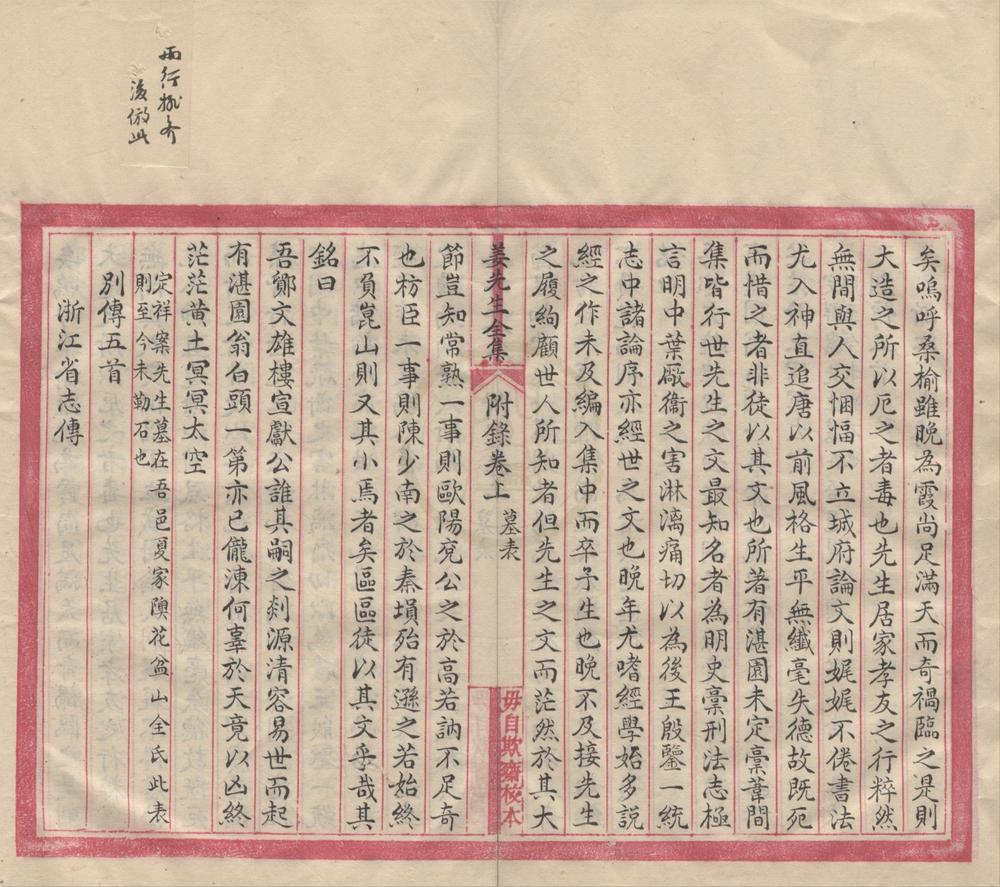 矣嗚呼桑榆雖晚為霞尚足滿天而奇禍臨之是則
大造之所以厄之者毒也先生居家孝友之行粹然
無間與人交悃愊不立城府論文則娓娓不倦書法
尤入神直追唐以前風格生平無纖毫失德故既死
而惜之者非徒以其文也所著有湛園未定稾葦間
集皆行世先生之文最知名者為明史稾刑法志極
言明中葉廠衛之害淋漓痛切以為後王殷鑒一統
志中諸論序亦經世之文也晚年尤嗜經學始多說
經之作未及編入集中而卒予生也晚不及接先生
之履絇顧世人所知者但先生之文而茫然於其大
姜先生全集
附錄卷上
墓表
毋自欺齋校本
節豈知常熟一事則歐陽兗公之於高若訥不足奇
也枋臣一事則陳少南之於秦塤殆有遜之若始終
不負崑山則又其小焉者矣區區徒以其文乎哉其
銘曰
吾鄮文雄樓宣獻公誰其嗣之剡源清容易世而起
有湛園翁白頭一第亦已儱涷何辜於天竟以凶終
茫茫黃土冥冥太空
定祥案先生墓在吾邑夏家隩花盆山全氏此表
則至今未勒石也
別傳五首
浙江省志傳
兩行挑齐
後倣此